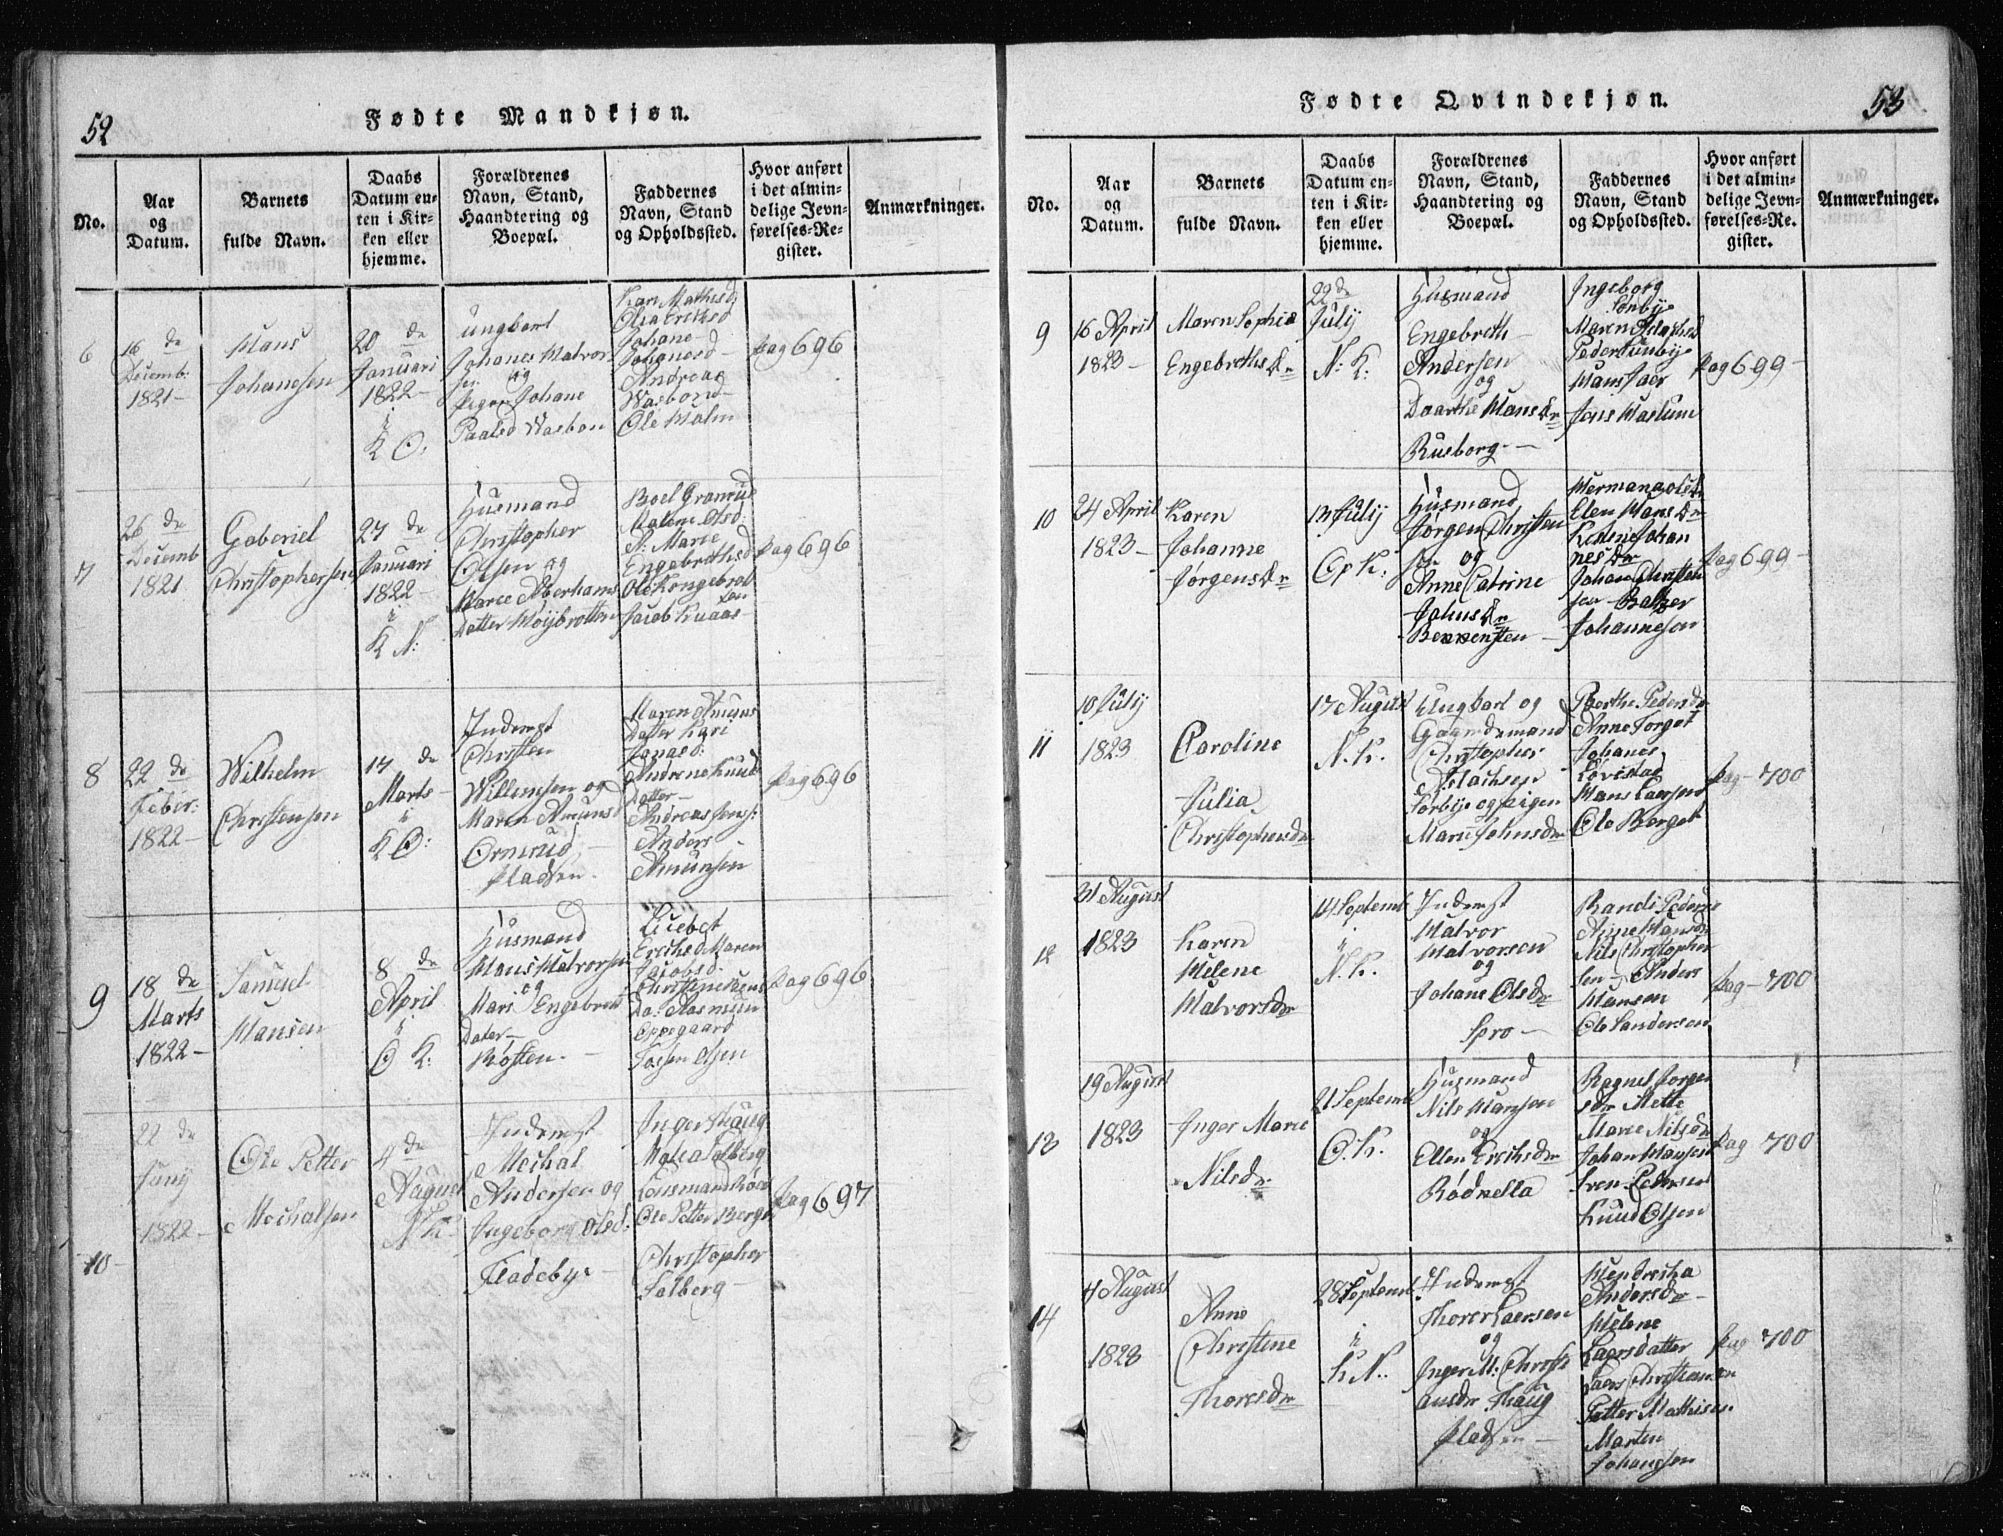 52
Fødte Mandkjøn.
No.
Aar
og
Datum.
Barnets
fulde Navn.
Daabs
Datum en-
ten i Kir-
ken eller
hjemme.
Forældrenes
Navn, Stand,
Haandtering og
Boepæl.
Faddernes
Navn, Stand
og Opholdssted.
Hvor anført
i det almin-
delige Jevn-
førelses-Re-
gister.
Anmærkninger.
6
16 de
Decemb:
1821-
Hans
Johansen
20 de
Januari
1822-
i
K O.
ungkarl
Johanes Halvor
sen og
Pigen Johane
Kari Mathisd
Olia Ericksd
Johane
Johanesd-
Andreas
Ole Malm
Pag 696
7
26 de
Decemb
1821
Gaberiel
Christophersen
27 de
Januari
1822-
i
K N:
Husmand
Christopher
Olsen og
Marie Aberhams
Datter Høijbrotten
Boel Granrud
Malene Olsd:
A: Marie
Engebrethsd
Jacob Knaas-
Pag 696
8
22 de
Feber:
1822-
Wilhelm
Christensen
17 de
Marts-
i
K O:
Inderst
Christen
Willemsen og
Maren Amunsd
Ornerud-
Pladsen.
Maren Amuns
Datter Kari
Hansd:
Andrene Knud
Datter-
Andreas Jens:
Anders
Amunsen
Pag 696
9
18 de
Marts
1822-
Samuel
Hansen
8 de
April
i
O K:
Husmand
Hans Halvorsen
og
Mari Engebret
Dater-
Røsten.-
Licebet
Ericksd Maren
Jacobsd:
Da: Rasmun
Eppegaard
Olsen
Pag 696
10
22 de
Juny
1822-
Ole Petter
Mechalsen
4 de
August
N K:
Inderst
Mechal
Andersen og
Ingeborg Olsd:
Fladebye-
Inger Haug
Malia Solberg
Ole Petter Berge
Christopher
Solberg-
Pag 697
53
Fødte Qvindekjøn.
No.
Aar
og
Datum.
Barnets
fulde Navn.
Daabs
Datum en-
ten i Kir-
ken eller
hjemme.
Forældrenes
Navn, Stand,
Haandtering og
Boepæl.
Faddernes
Navn, Stand
og Opholdssted.
Hvor anført
i det almin-
delige Jevn-
førelses-Re-
gister.
Anmærkninger.
9
16 April
1823-
Maren Sophie
Engebrethsdr
22 de
Julij
N: K:
Husmand
Engebreth
Andersen
og
Doarthe Hansdr
Rusborg-
Ingeborg
Sønbÿe
Maren
Peder Sunbÿe
Hans Jaer
Jens Haslum
Pag 699-
10
24 April
1823-
Karen
Johanne
Jørgensdr
13 Julij
O K:
Husmand
Jørgen Christen
sen og
Anne Catrine
Johnsdr
Bonnensten-
Hermana Olsdr
Elen Hansdr
Kirstine Johan
nesdr
Johan Christen
sen Balzer
Johannesen
Pag 699-
11
10 Julij
1823
Caroline
Julia
Christophersdr
17 August
N. K.
Ungkarl og
Gaardmand
Christopher
Sørbÿe og Pigen
Marie Johnsdr
Berthe Pedersdr
Anne Torget
Johanes
Løvestad
Hans Laersen
Ole Borget
Pag-700
12
31 August
1823
Karen
Helene
Halvorsdr
14 Septemb
i
N. K.
Inderst
Halvor
Halvorsen
og
Johane Olsdr
Spro-
Randi Peders
Anne Hansdr
Nils Christopher
sen- Anders
Hansen
Ole Sandersen
Pag-700
13
19 August
1823
Inger Marie
Nilsdr
21 Septemb
O. K.
Husmand
Nils Hansen
og
Ellen Ericksdr
Rødnella
Ragnel Jørgen
sdr Mette
Marie Nilsdr
Johan Hansen
Sven Pedersen
Knud Olsen
Pag 700
14
4 August
1823
Anne
Christine
Thoresdr
28 Septemb
i
K N.
Inderst
Thorer Laersen
og
Inger M: Christi
ansdr Haug
Pladsen-
Hendricka
Andersdr-
Helene
Laersdatter
Laers Christiansen
Petter Mathisen.
Marten
Johansen
Pag 700